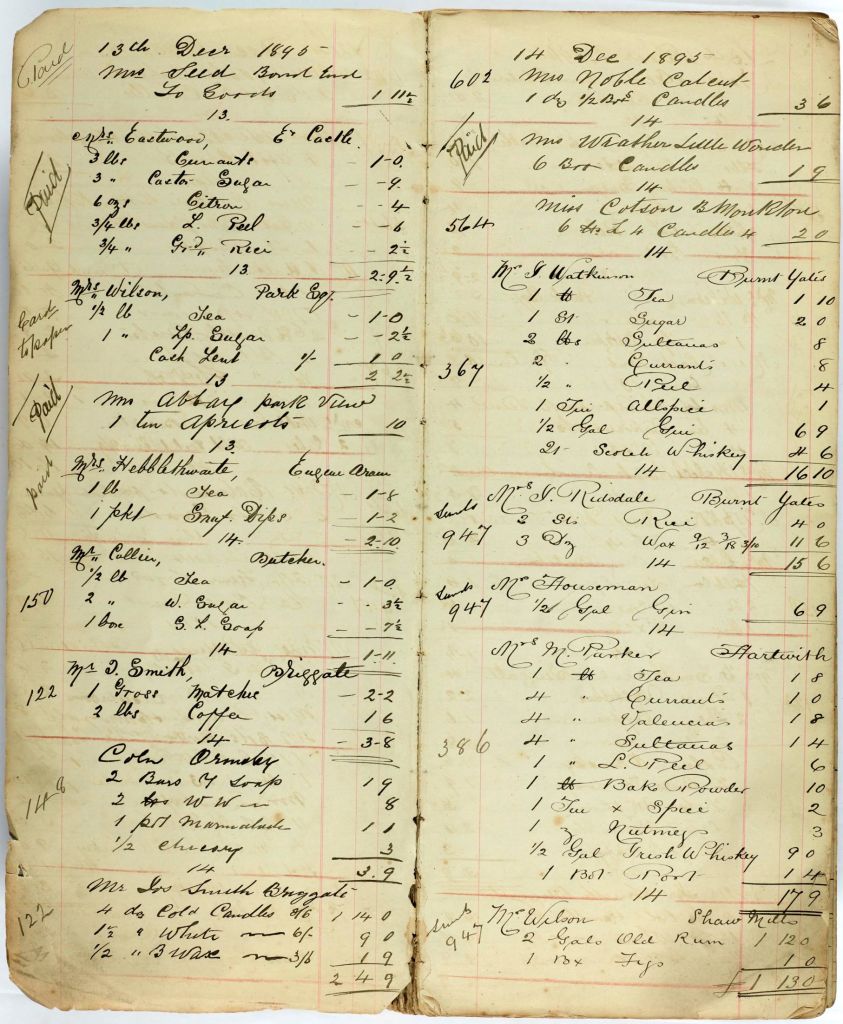 Paid
13th Decr 1895
Mrs Seed Bond End
To Goods 1 11½
13.
Mrs Eastwood, Er Castle.
Paid
3 lbs Currants 1-0.
3 " Castor Sugar - -9.
6 ozs Citron - -4
3/4 lbs L. Peel - -6
3/4 " Grd Rice - 2½
13 2-9½
Mrs Wilson, Park Eq.
½ lb Tea - 1-0
1 " Lp. Sugar - -2½
Cash Lent 1/- 1 0
13 2 2½
Paid
Mrs Abbay Park View
1 tin Apricots 10
13.
Mrs. Hebblethwaite, Eugene Aram
paid
1 lb Tea - 1-8
1 pkt Dips - 1-2
14. - 2-10
Mr. Collier, Butcher.
½ lb Tea - 1-0.
150
2 " W. Sugar - . 3½
1 box G. L. Soap - -7½
14 1-11.
Mr T. Smith, Briggate
122
1 Gross Matches - 2-2
2 lbs Coffee 1 6
14 - 3-8
Coln Ormsby
148
2 Bars Y Soap 1 9
2 lbs W W 8
1 pot Marmalade 1 1
½ Chicory 3
14 3.9
Mr Jos Smith Briggate
122
4 dz Cold Candles 8/6 1 14 0
1½ " White 6/- 9 0
½ " B Wax 3/6 1 9
2 4 9
14 Dec 1895
602 Mrs Noble Calcut
1 dz ½ Box Candles 3 6
14
Paid
Mrs Weather Little Wonder
6 Box Candles 1 9
14
564
Miss Cotson B Monkton
6 lbs 4 Candles 4 2 0
14
Mr J Watkinson Burnt Yates
1 lb Tea 1 10
1 St Sugar 2 0
2 lbs Sultanas 8
367
2 " Currants 8
½ " Peel 4
1 Tin Allspice 1
½ Gal Gin 6 9
Qt Scotch Whiskey 4 6
14 16 10
Mrs J. Ridsdale Burnt Yates
947
2 Sts Rice 4 0
3 Doz Wax 9/12 3/18 3/10 11 6
14 15 6
Mr Houseman
947
½ Gal Gin 6 9
14
Mrs M. Parker Hartwith
1 lb Tea 1 8
4 " Currants 1 0
4 " Valencias 1 8
386
4 " Sultanas 1 4
1 " L. Peel 6
1 lb Bak Powder 10
1 Tin x Spice 2
1 oz Nutmegs 3
½ Gal Irish Whiskey 9 0
1 Bot Port 1 4
14 17 9
Mr Wilson Shaw Mills
947
2 Gals Old Rum 1 12 0
1 Bx Figs 1 0
£1 13 0